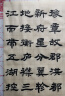 豫章故郡洪都
新府星分翼轸
地接衡庐襟三
江而带五湖控